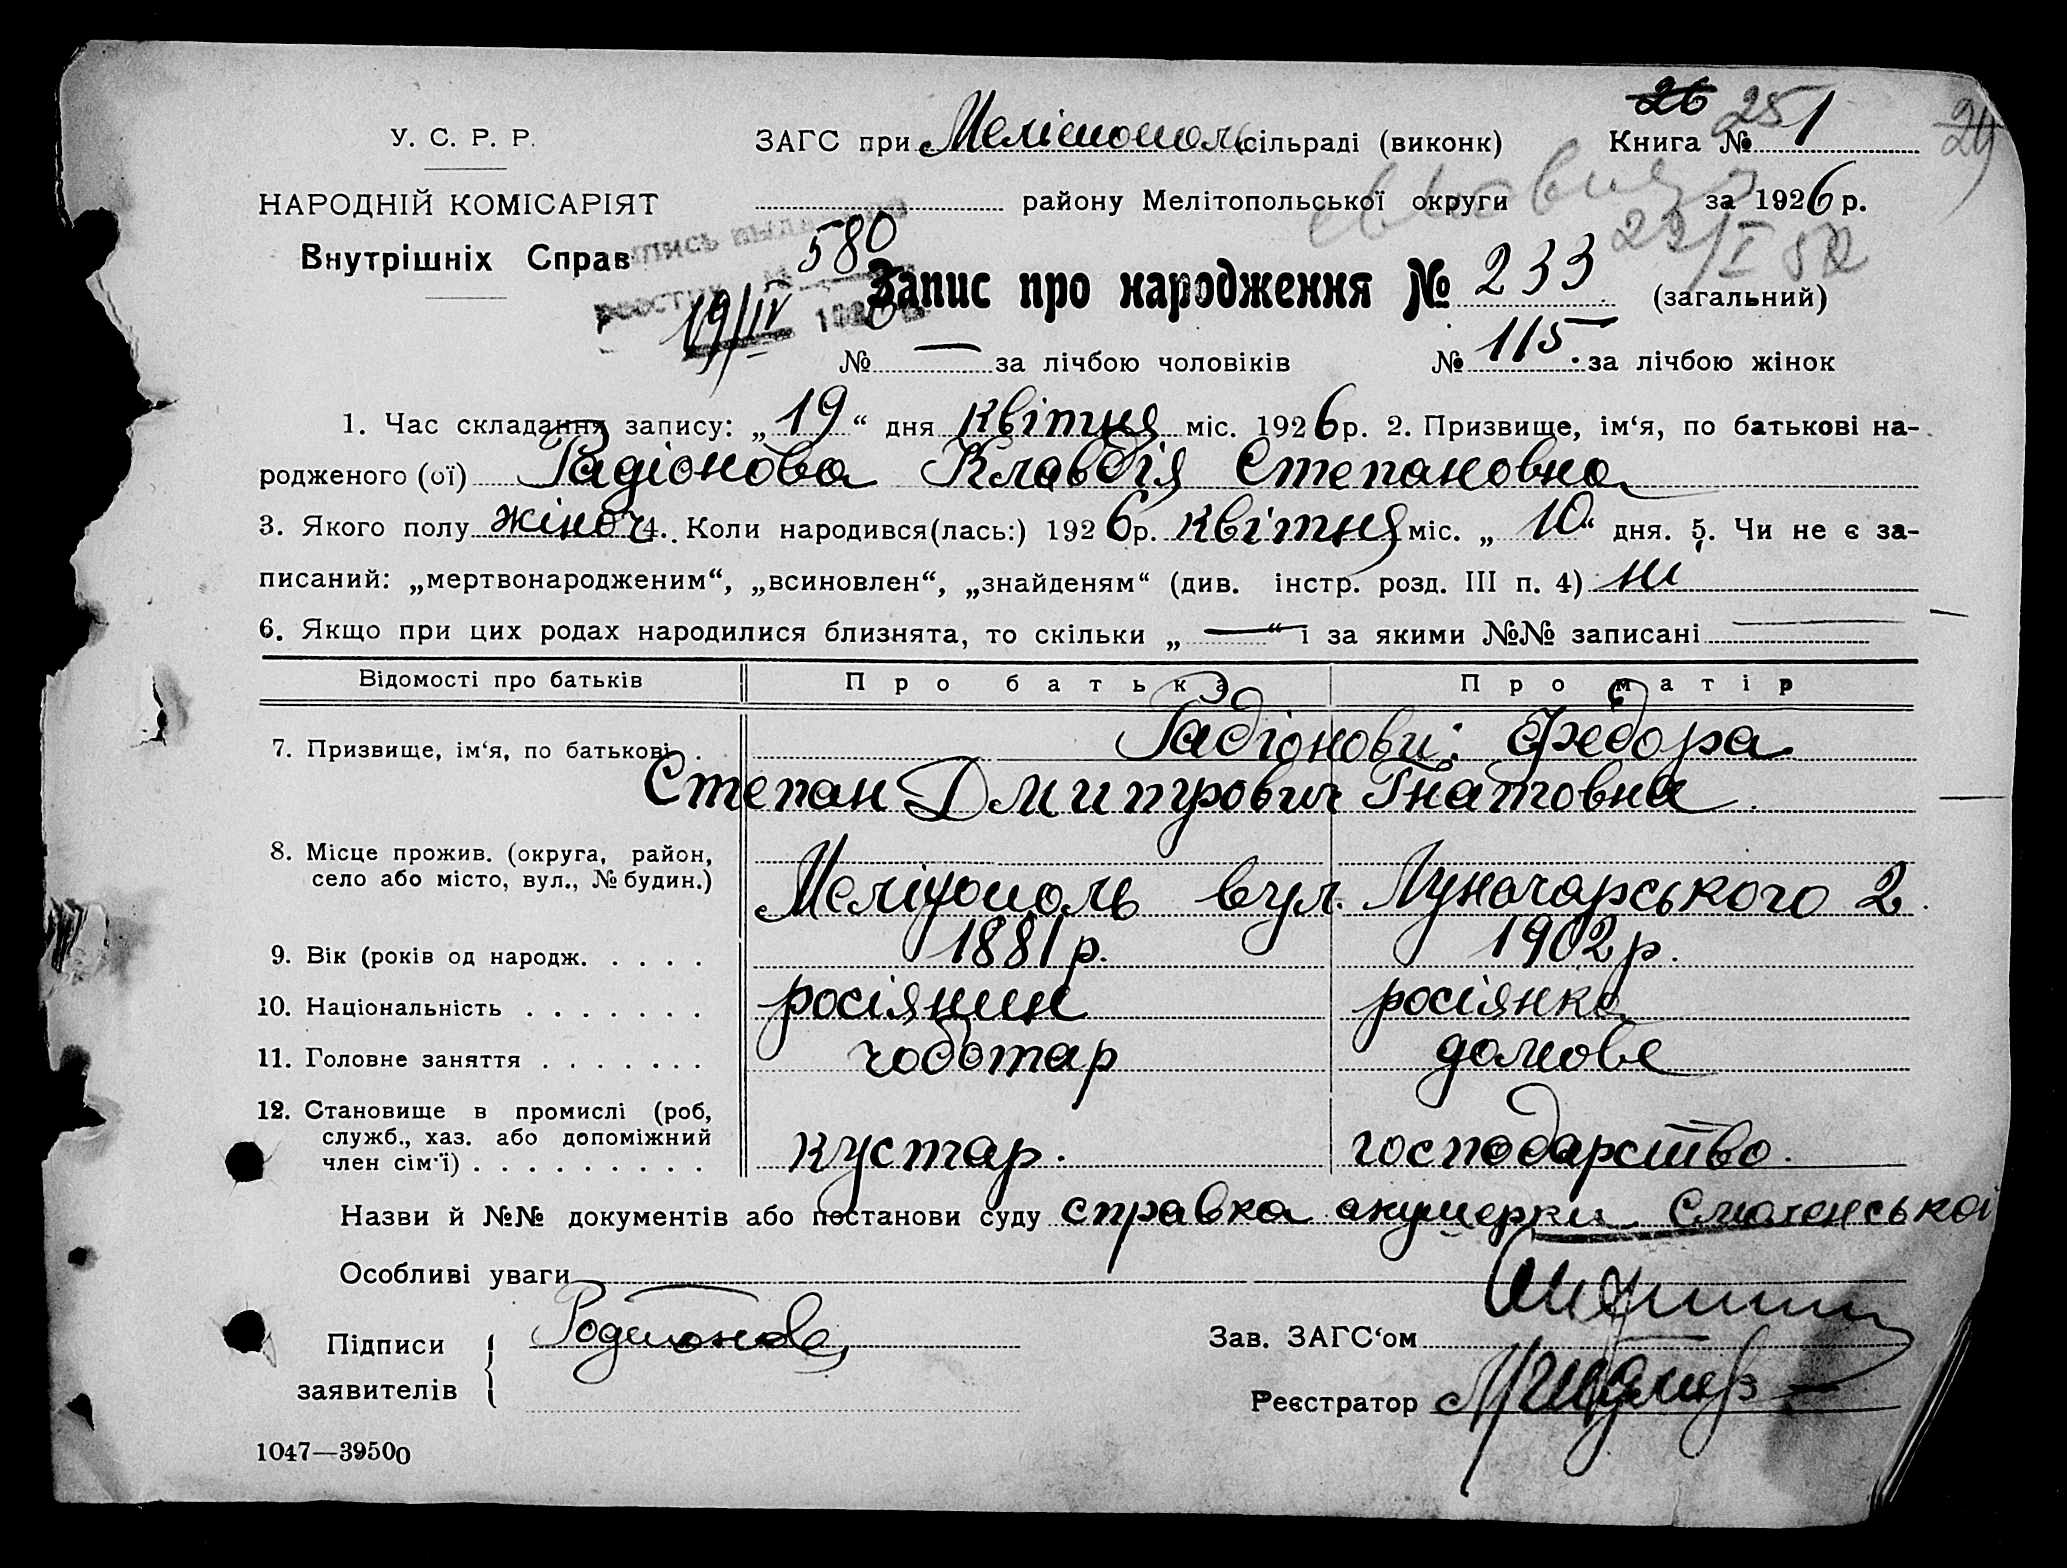 26 25 29
У. С. Р. Р. ЗАГС при Мелітополь сільраді (виконк) Книга № 1
НАРОДНІЙ КОМІСАРІЯТ району Мелітопольської округи за 1926 р.
Внутрішніх Справ 580 22/I 52
Запис про народження № 233 (загальний)
19/IV
№ — за лічбою чоловіків № 115 за лічбою жінок
1. Час складання запису: „19“ дня квітня міс. 1926 р. 2. Призвище, ім‘я, по батькові на-
родженого (ої) Радіонова Клавдія Степановна
3. Якого полу жіноч 4. Коли народився(лась:) 1926 р. квітня міс. „10“ дня. 5. Чи не є за-
писаний: „мертвонародженим“, „всиновлен“, „знайденям“ (див. інстр. розд. III п. 4) ні
6. Якщо при цих родах народилися близнята, то скільки „—“ і за якими №№ записані —
Відомості про батьків Про батька Про матір
7. Призвище, ім‘я, по батькові Радіонови: Федора
Степан Дмитрович Гнатовна
8. Місце прожив. (округа, район,
село або місто, вул., № будин.) Мелітополь вул. Луначарського 2
9. Вік (років од народж. . . . . 1881 р. 1902 р.
10. Національність . . . . . . . росіянин росіянка
11. Головне заняття . . . . . . . чоботар домове
12. Становище в промислі (роб,
служб., хаз. або допоміжний
член сім‘ї) . . . . . . . . . кустар. господарство.
Назви й №№ документів або постанови суду справка акушерки Смоленської
Особливі уваги
Підписи Родионов Зав. ЗАГС‘ом
заявителів Реєстратор
1047—39500